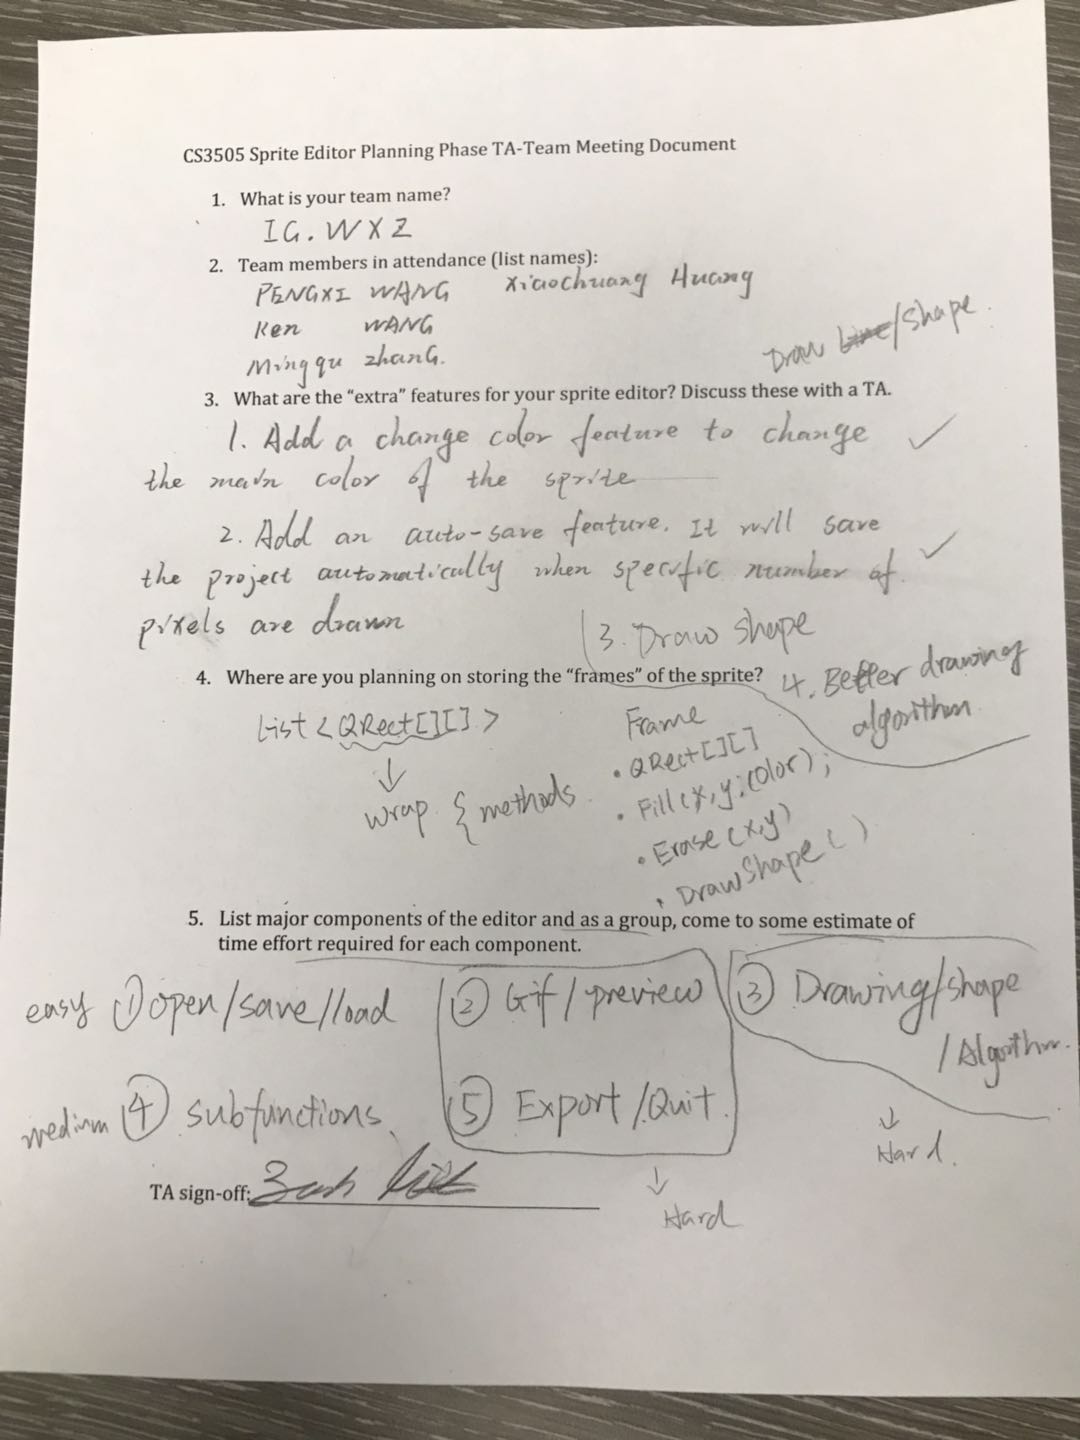 CS3505 Sprite Editor Planning Phase TA-Team Meeting Document
1. What is your team name?
IG. WXZ
2. Team members in attendance (list names):
PENGXI WANG Xiaochuang Huang
Ken WANG
Mingqu zhanG.
Draw Line/Shape.
3. What are the “extra” features for your sprite editor? Discuss these with a TA.
1. Add a change color feature to change ✓
the main color of the sprite
2. Add an auto-save feature. It will save
the project automatically when specific number of ✓
pixels are drawn
3. Draw shape
4. Where are you planning on storing the “frames” of the sprite?
4. Better drawing
algorithm
List <QRect[][]>
↓
wrap & methods.
Frame
• QRect[][]
• Fill(x,y,color);
• Erase(x,y)
• DrawShape()
5. List major components of the editor and as a group, come to some estimate of
time effort required for each component.
easy ① open/save/load ② Gif/preview ③ Drawing/shape
/Algorithm.
medium ④ subfunctions ⑤ Export/Quit.
↓
Hard.
TA sign-off:
↓
Hard